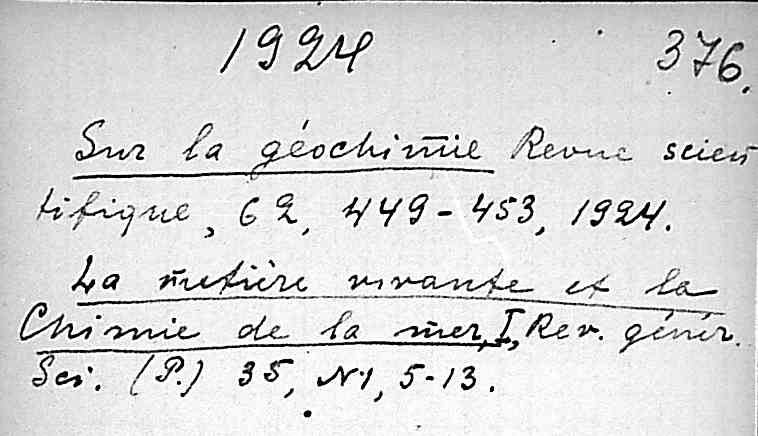 1924 376.
Sur la géochimie Revue scien
tifique, 62, 449-453, 1924.
La metière vivante et la
Chimie de la mer, I, Rev. génér.
Sci. (P.) 35, N1, 5-13.